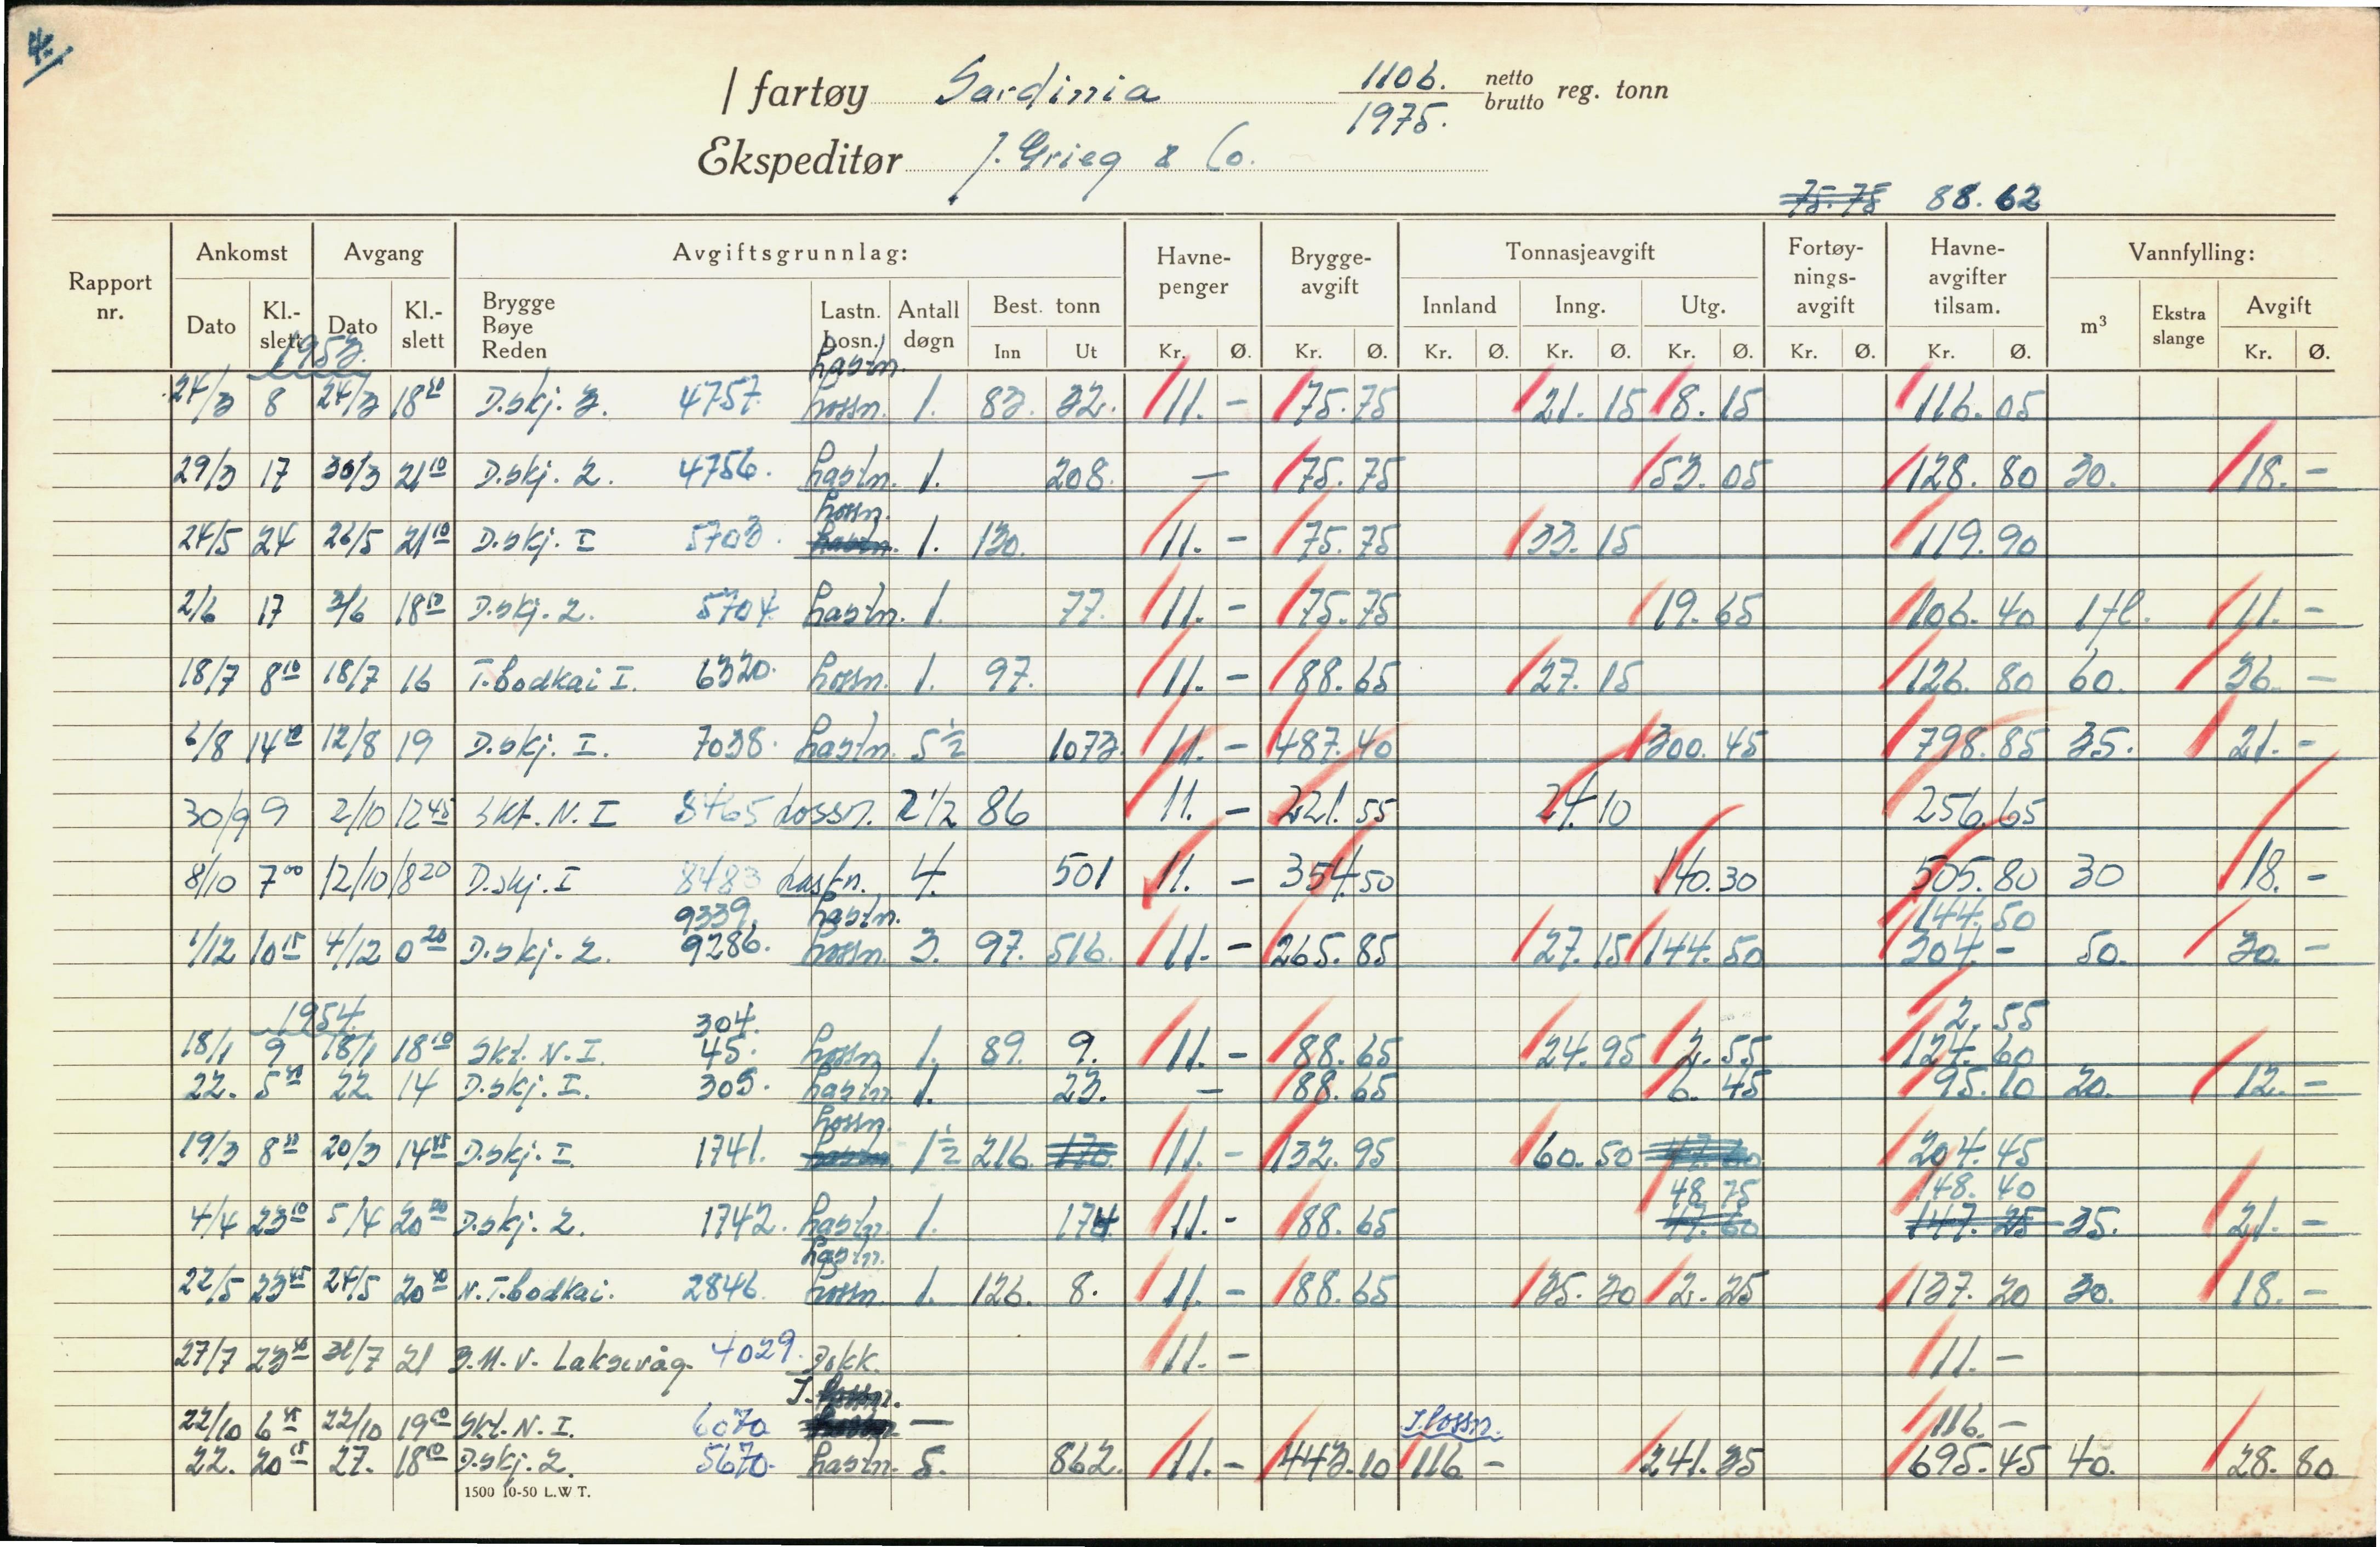 4.
/ fartøy Sardinia 1106. netto reg. tonn
1975. brutto
Ekspeditør J. Grieg & Co.
75.75 88.62
Rapport nr. Ankomst Avgang Avgiftsgrunnlag: Havnepenger Bryggeavgift Tonnasjeavgift Fortøynings-avgift Havneavgifter tilsam. Vannfylling:
Dato Kl.-slett Dato Kl.-slett Brygge Bøye Reden Lastn. Losn. Antall døgn Best. tonn Innland Inng. Utg. m³ Ekstra slange Avgift
Inn Ut Kr. Ø. Kr. Ø. Kr. Ø. Kr. Ø. Kr. Ø. Kr. Ø. Kr. Ø. Kr. Ø.
1953.
Lastn.
24/3 8 24/3 18 20 D.skj. 3. 4757. Lossn. 1. 83. 32. 11. - 75.75 21.15 8.15 116.05
29/3 17 30/3 21 10 D.skj. 2. 4756. Lastn. 1. 208. - 75.75 53.05 128.80 30. 18. -
Lossn.
24/5 24 26/5 21 10 D.skj. I 5703. Lastn. 1. 130. 11. - 75.75 33.15 119.90
2/6 17 3/6 18 D.skj. 2. 5704. Lastn. 1. 77. 11. - 75.75 19.65 106.40 1 fl. 11. -
18/7 8 10 18/7 16 T.bodkai I. 6320. Lossn. 1. 97. 11. - 88.65 27.15 126.80 60. 36. -
6/8 14 12/8 19 D.skj. I. 7038. Lastn. 5 1/2 1073. 11. - 487.40 300.45 798.85 35. 21. -
30/9 9 2/10 12 45 Skt. N. I 8465 Lossn. 2 1/2 86 11. - 221.55 24.10 256.65
8/10 7 00 12/10 18 20 D.skj. I 8483 Lastn. 4. 501 11. - 354.50 140.30 505.80 30 18. -
9339. Lastn. 144.50
1/12 10 15 4/12 0 20 D.skj. 2. 9286. Lossn. 3. 97. 516. 11. - 265.85 27.15 144.50 304. - 50. 30. -
1954.
304. 2.55
18/1 9 18/1 18 10 Skt. N. I. 45. Lossn. 1. 89. 9. 11. - 88.65 24.95 2.55 124.60
22. 5 22. 14 D.skj. I. 305. Lastn. 1. 23. - 88.65 6.45 95.10 20. 12. -
Lossn.
19/3 8 20/3 14 45 D.skj. I. 1741. Lastn. 1 1/2 216. 170. 11. - 132.95 60.50 47.60 204.45
48.75 148.40
4/4 23 10 5/4 20 D.skj. 2. 1742. Lastn. 1. 174 11. - 88.65 47.60 147.25 35. 21. -
Lastn.
22/5 23 45 24/5 20 N.T.bodkai. 2846. Lossn. 1. 126. 8. 11. - 88.65 35.30 2.25 137.20 30. 18. -
27/7 23 31/7 21 B.M.V. Laksevåg. 4029. Dokk. 11. - 11. -
I. Lossn.
22/10 6 45 22/10 19 Skt. N. I. 6070 — I. lossn. 116. -
22. 20 15 27. 18 D.skj. 2. 5670. Lastn. 5. 862. 11. - 443.10 116 - 241.35 695.45 40. 28.80
1500 10-50 L.W T.